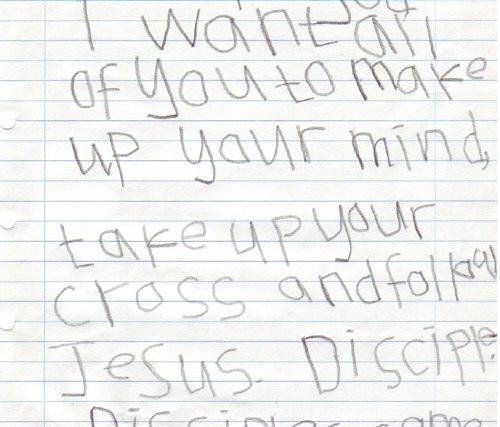 I want all
of you to make
up your mind,
take up your
cross and follow
Jesus. Disciple
Disciples came